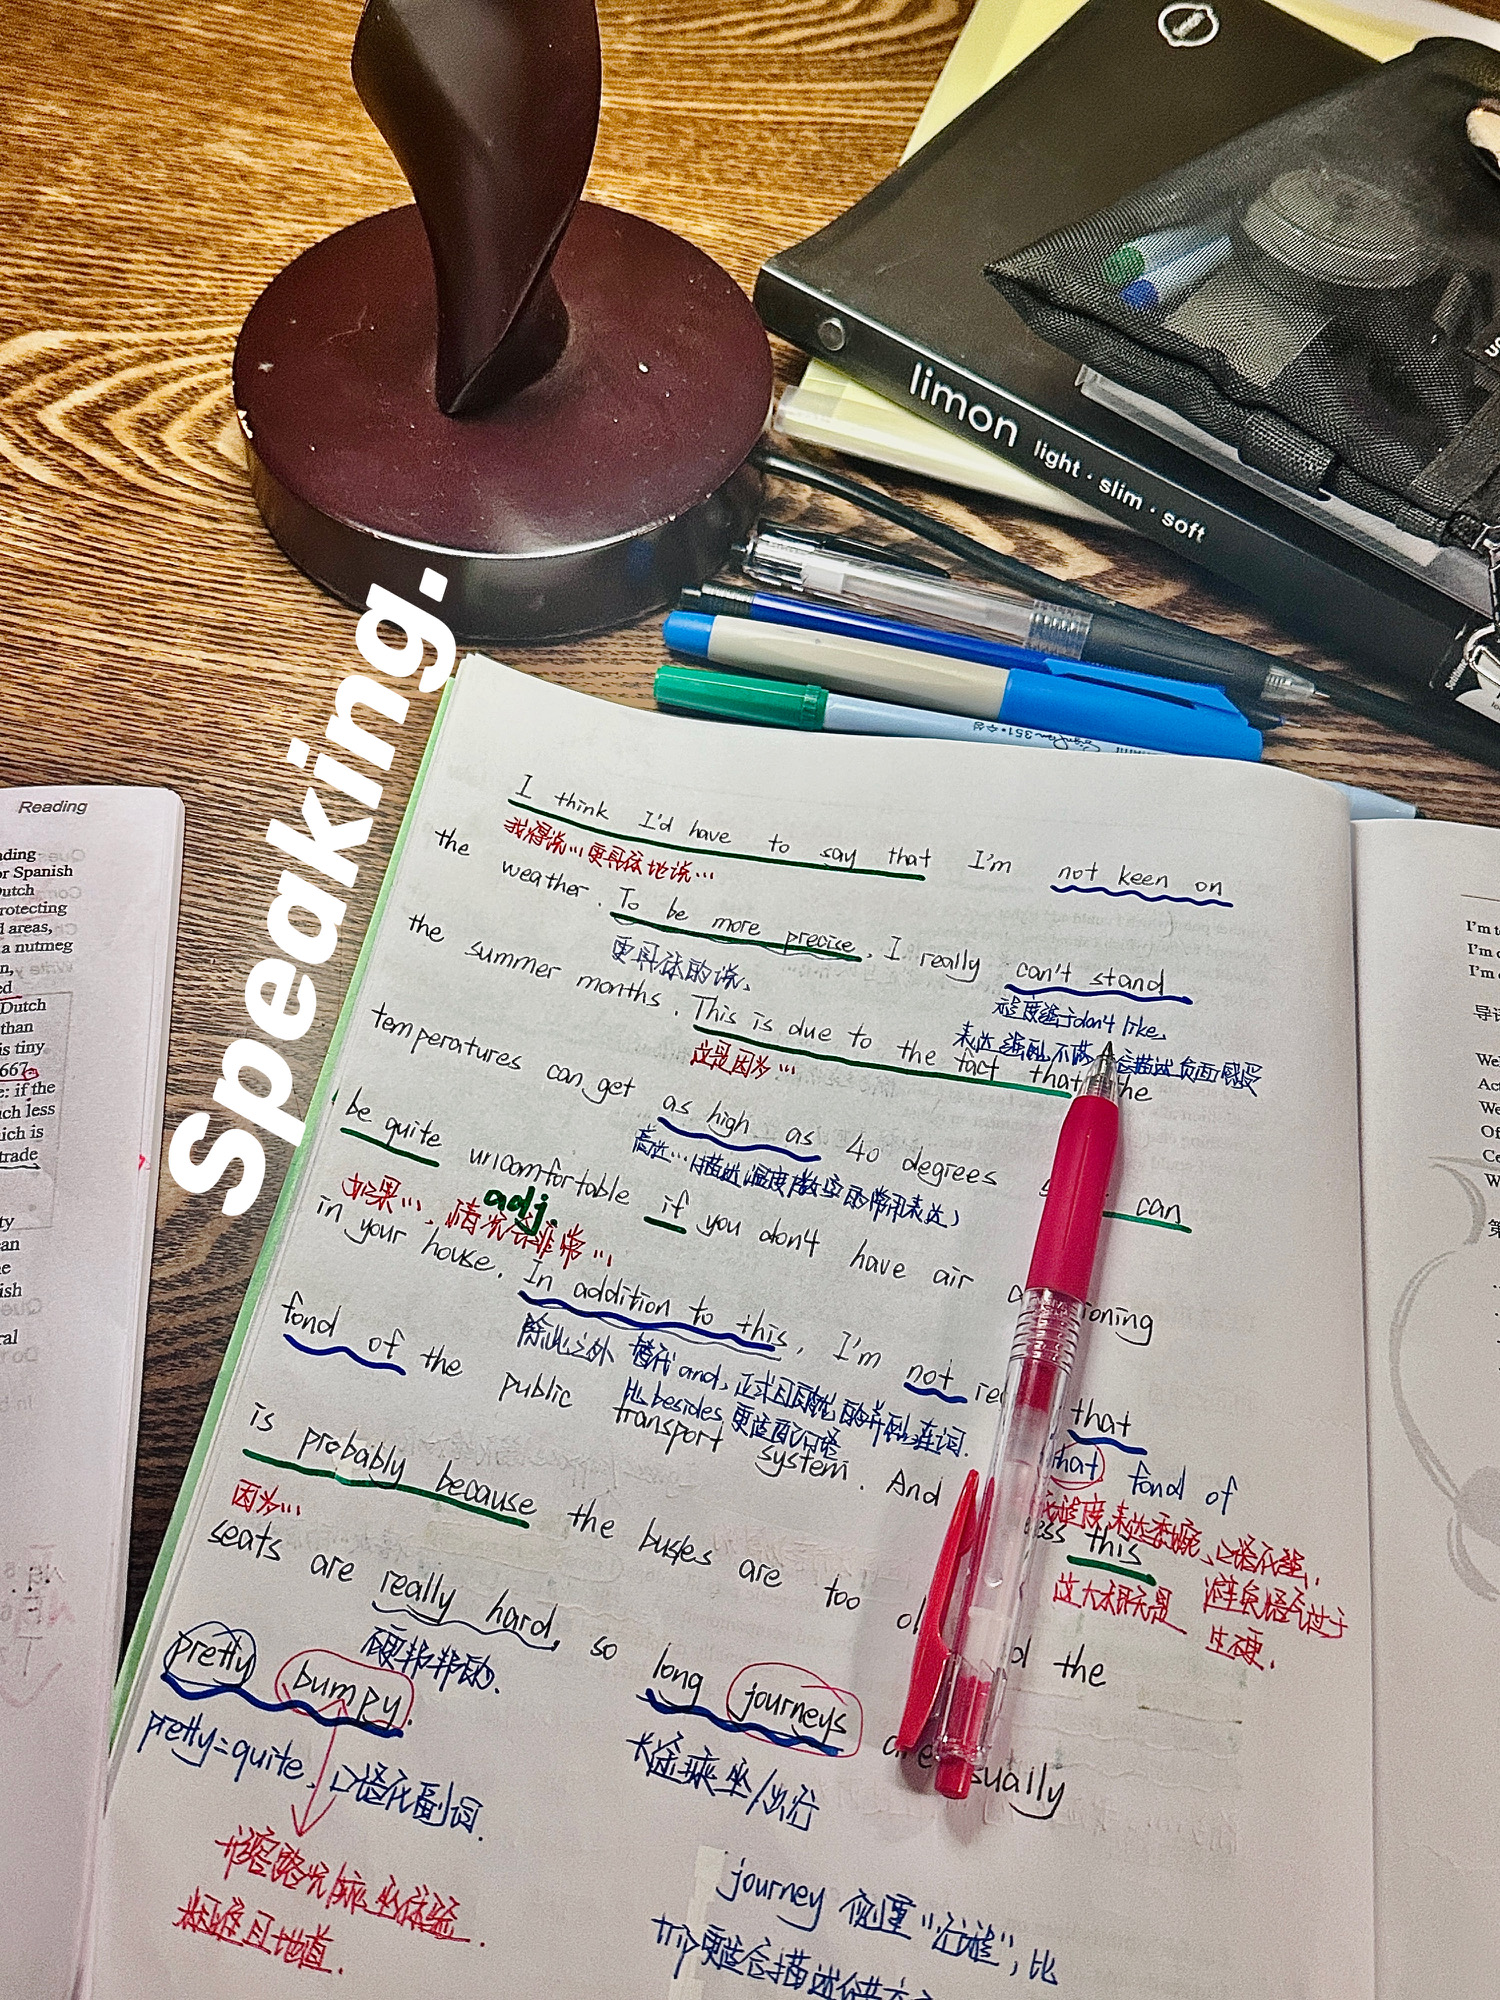 limon light · slim · soft
Speaking.
Reading
I think I'd have to say that I'm not keen on
我得说…更具体地说…
the weather. To be more precise, I really can't stand
更具体的说、
程度强于don't like,
the summer months. This is due to the fact that the
这是因为…
表达强烈不满 会描述负面感受
temperatures can get as high as 40 degrees can
高达…(描述温度/数字的常用表达)
be quite uncomfortable if you don't have air
adj.
如果…,情况会非常…
in your house. In addition to this, I'm not that
除此之外 替代and,正式且自然的并列连词.
比besides更适配口语
fond of the public transport system. And this
that fond of
程度,表达委婉、口语化强,
避免语气过于
生硬.
is probably because the buses are too the
因为…
这大概是
seats are really hard, so long journeys are usually
硬邦邦的.
长途乘坐/出行
pretty bumpy.
pretty=quite、口语化副词.
形容路况/乘坐体验
粗难且地道.
journey 侧重"行程",比
trip更适合描述
ading
or Spanish
Dutch
rotecting
d areas,
a nutmeg
n,
ed
Dutch
than
is tiny
667.
e: if the
ch less
hich is
trade
ty
ean
he
ish
ral
I'm t
I'm c
I'm e
导语
We
Act
We
Of
Ce
W
第